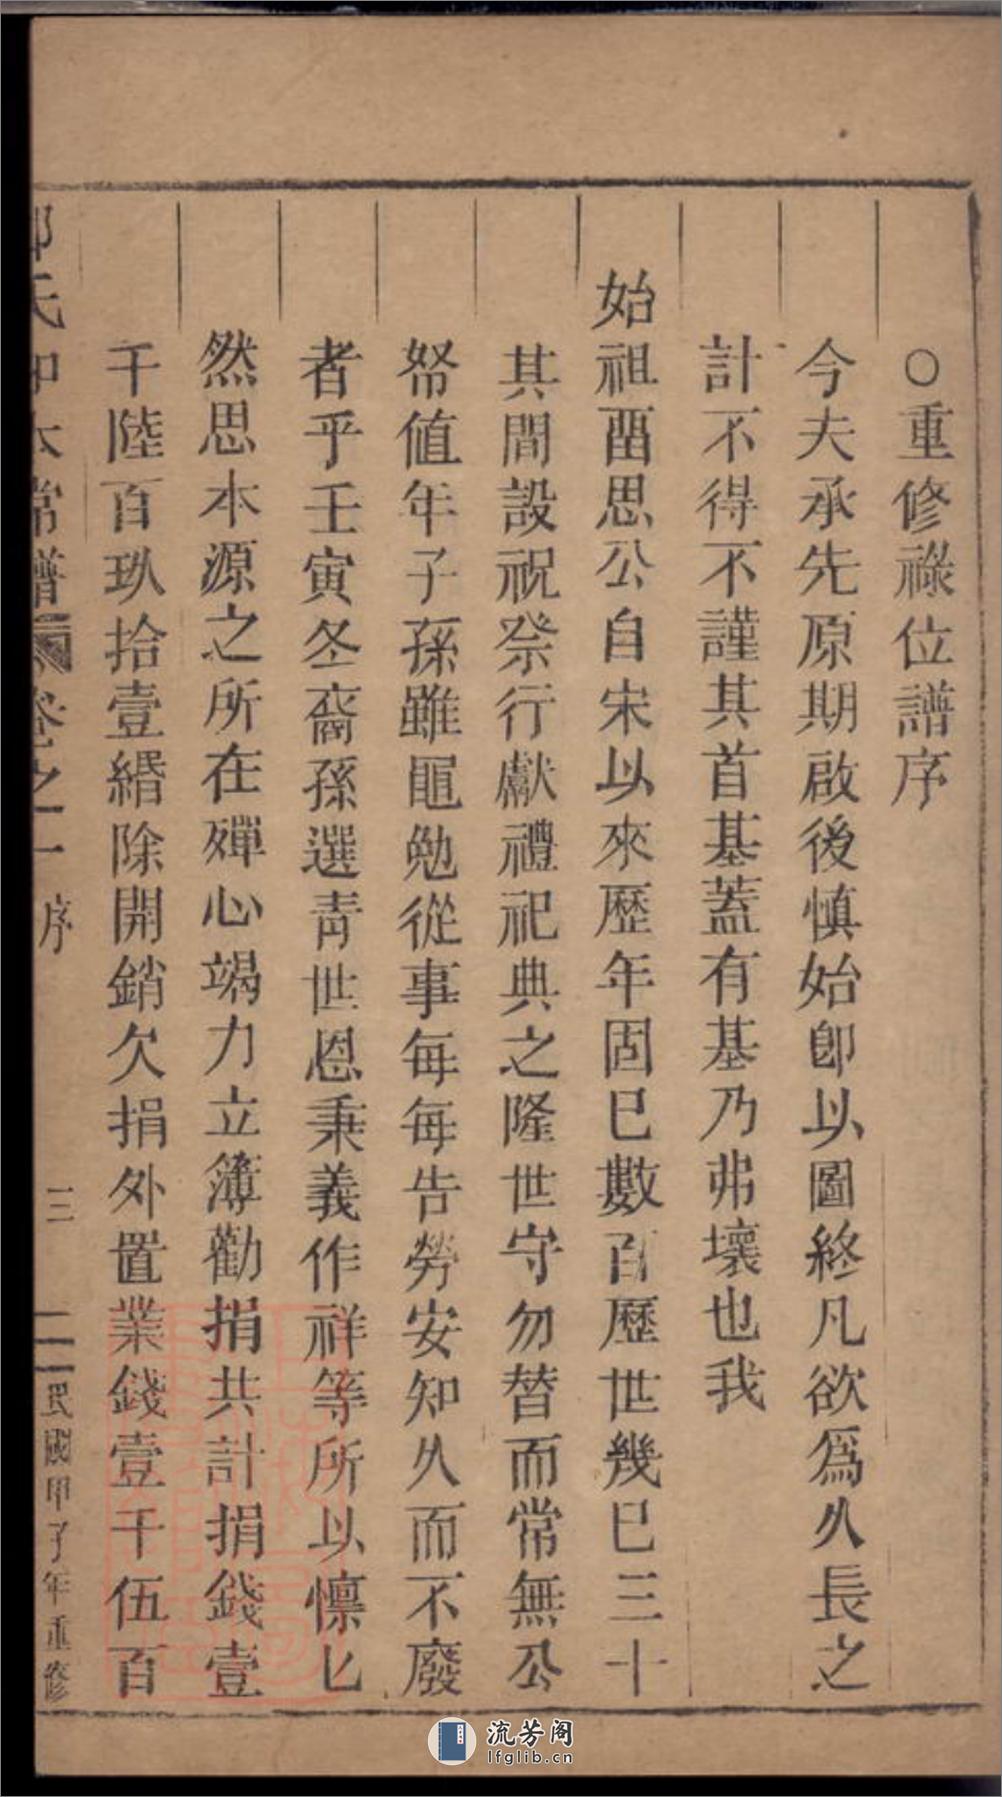 ○重修祿位譜序
今夫承先原期啟後慎始卽以圖終凡欲爲久長之
計不得不謹其首基蓋有基乃弗壞也我
始祖酉思公自宋以來歷年固巳數百歷世幾巳三十
其間設祝祭行獻禮祀典之隆世守勿替而常無公
帑値年子孫雖黽勉從事每每告勞安知久而不廢
者乎壬寅冬裔孫選青世恩秉義作祥等所以懍匕
然思本源之所在殫心竭力立簿勸捐共計捐錢壹
千陸百玖拾壹緡除開銷欠捐外置業錢壹千伍百
氏 常譜 卷之一 序 三 民國甲子年重修
流芳阁
lfglib.cn